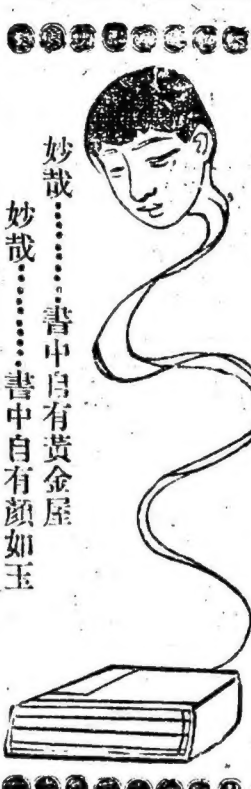 妙哉………書中自有黃金屋
妙哉………書中自有顏如玉